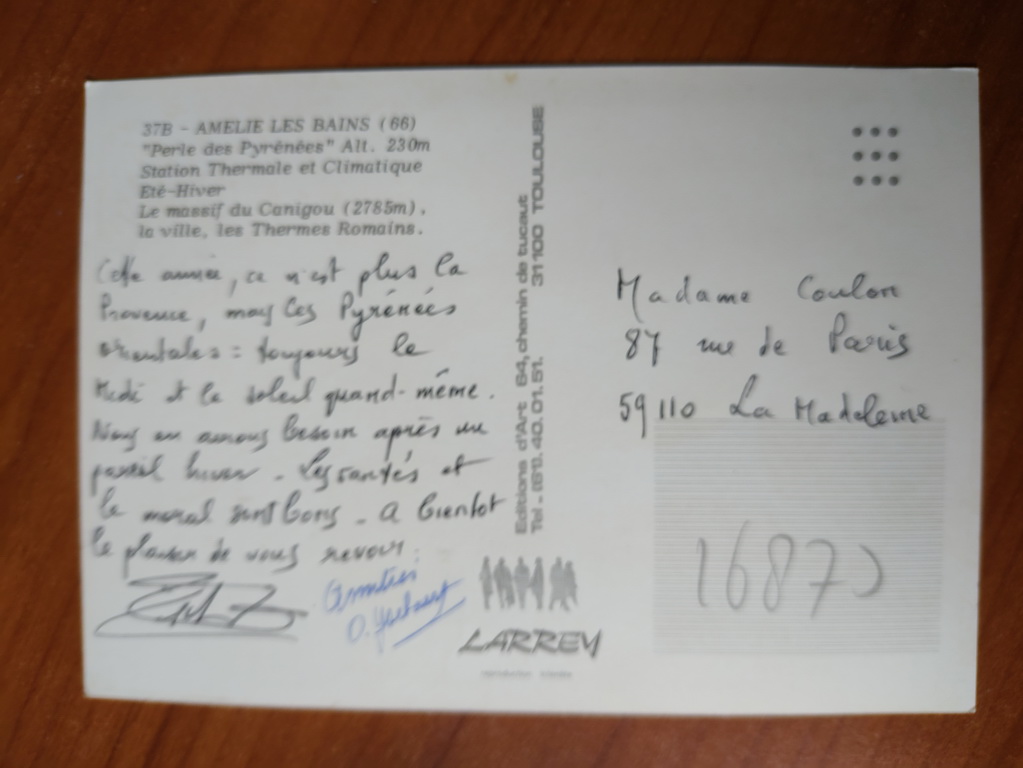 37B - AMELIE LES BAINS (66)
"Perle des Pyrénées" Alt. 230m
Station Thermale et Climatique
Eté-Hiver
Le massif du Canigou (2785m),
la ville, les Thermes Romains.
Cette année, ce n'est plus la
Provence, mais les Pyrénées
orientales : toujours le
Midi et le soleil quand-même.
Nous en avons besoin après un
pareil hiver - Les santés et
le moral sont bons - A bientôt
le plaisir de vous revoir.
Amitiés
Editions d'Art 64, chemin de tucaut 31100 TOULOUSE
Tel. (61). 40.01.51.
LARREY
Madame Coulon
87 rue de Paris
59110 La Madeleine
1687